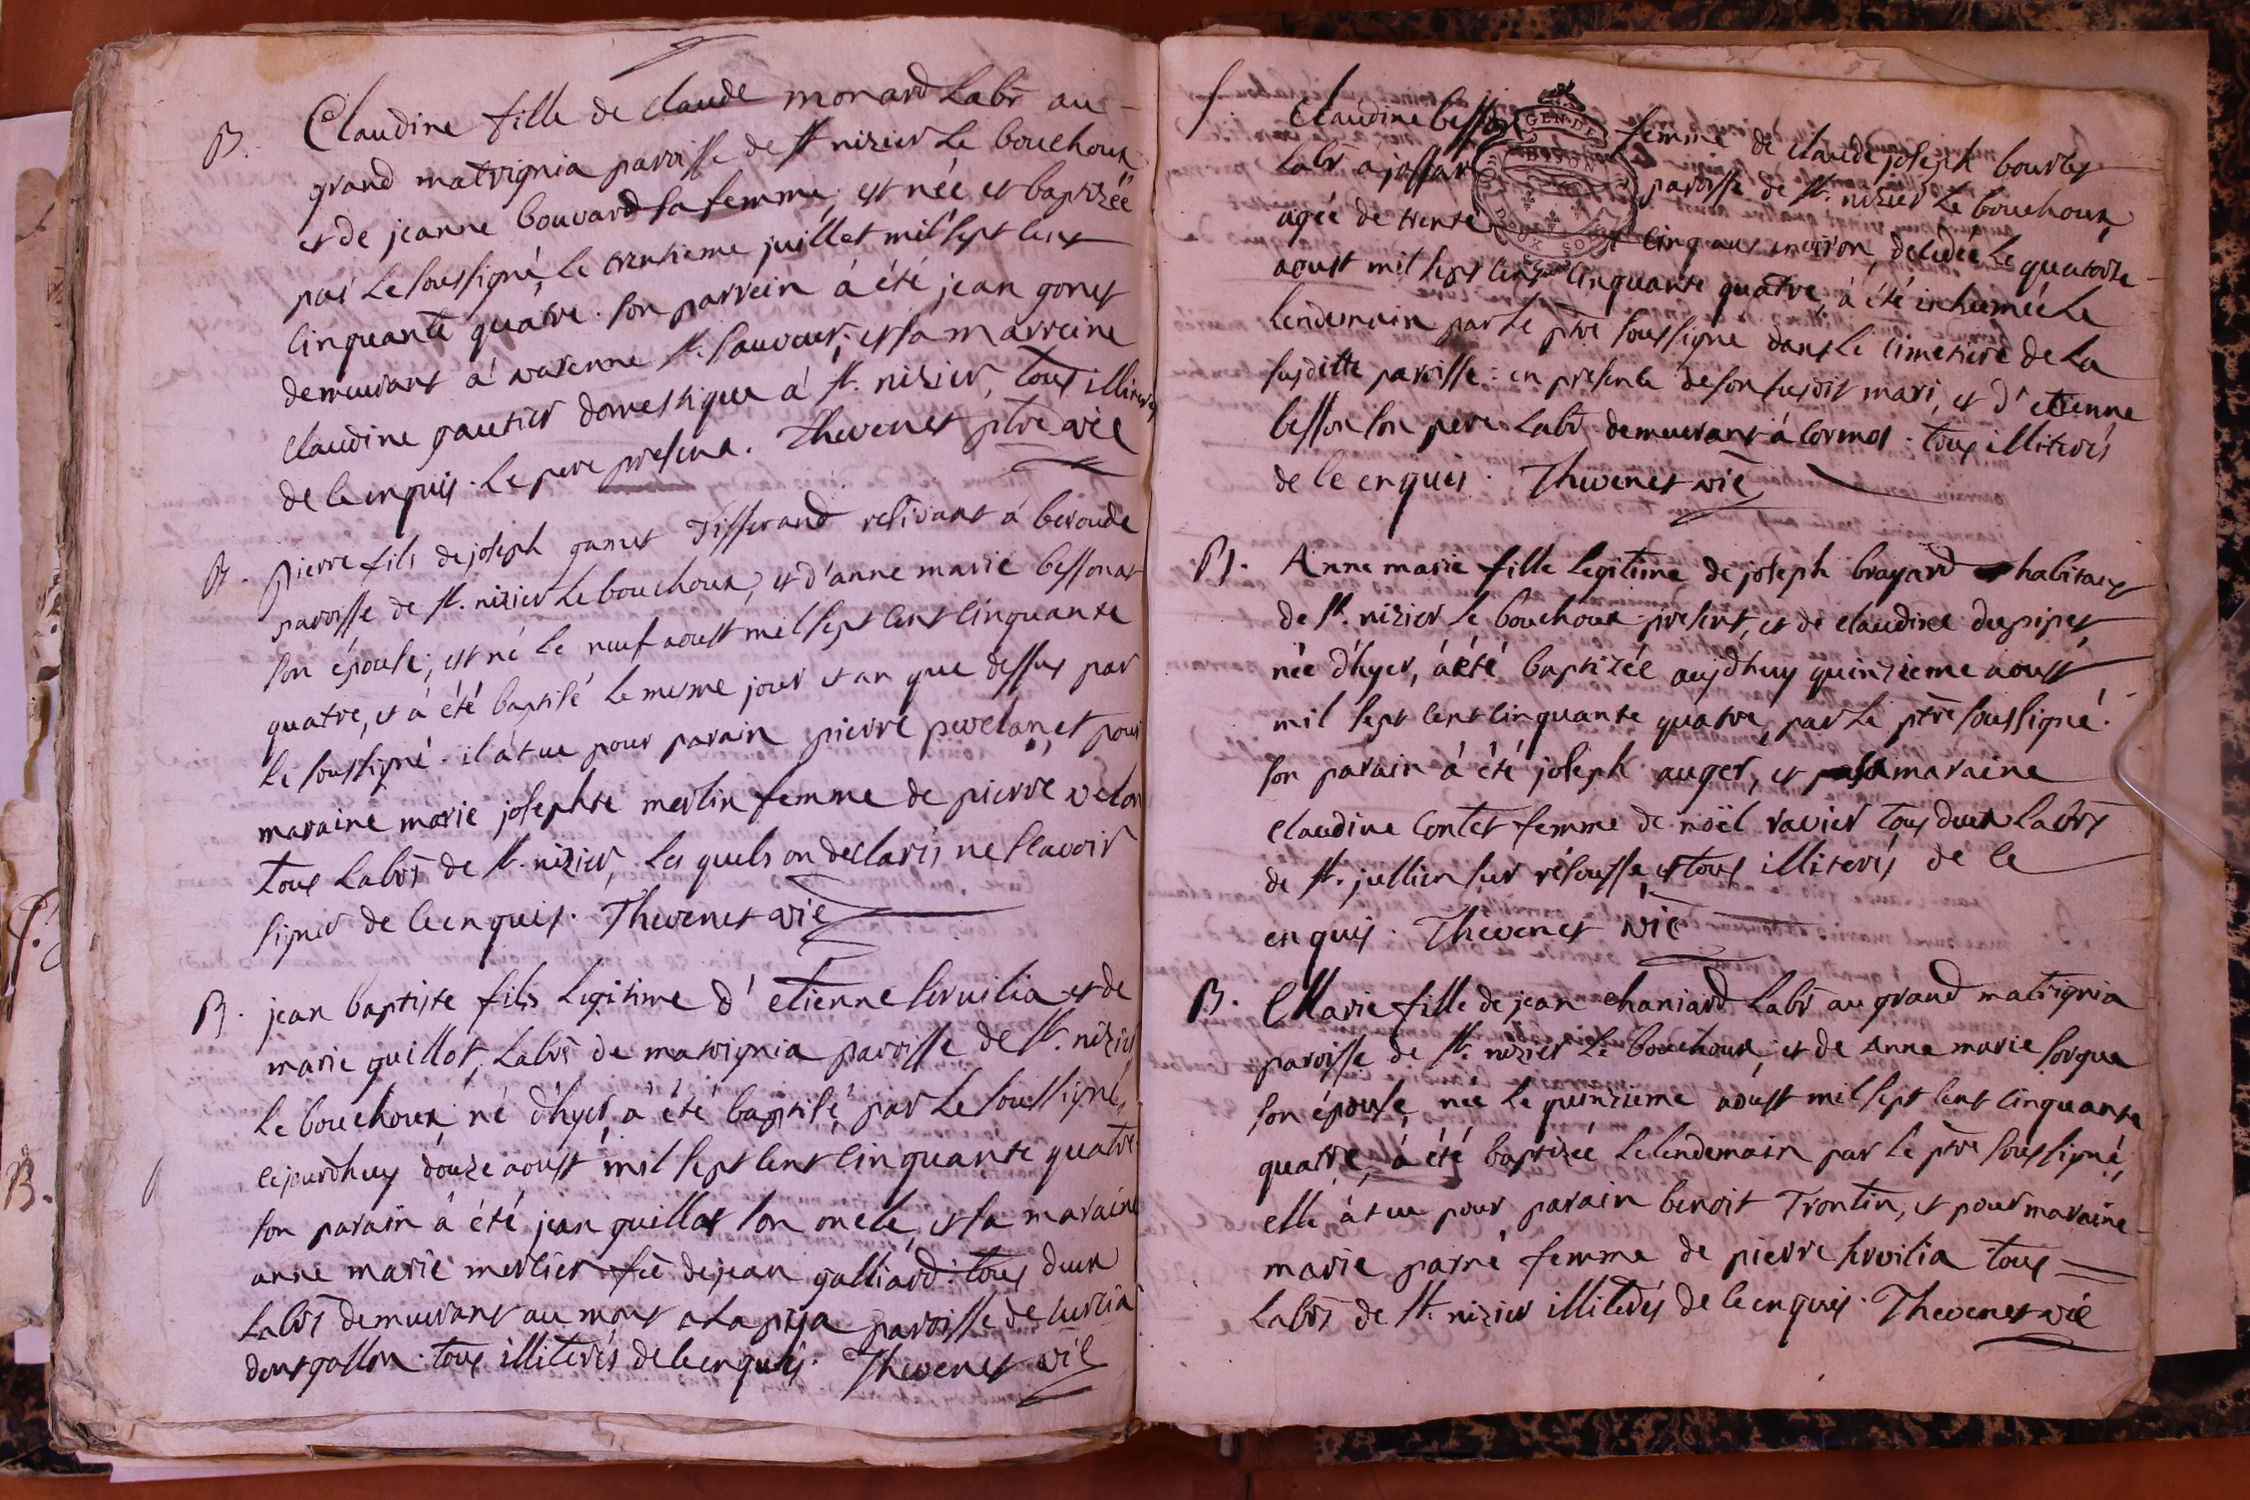 B. Claudine fille de claude monard labr au
grand matrignia paroisse de st nizier le bouchoux
et de jeanne bouvard sa femme, est née et baptizée
par le soussigné, le trentieme juillet mil sept cent
cinquante quatre. son parrein à été jean gonet
demeurant à varenne st. sauveur; et sa marreine
claudine gautier domestique à st. nizier, tous illiterés
de ce enquis. le pere present. Thevenet ptre vic
B. pierre fils de joseph gamet Tisserand residant à beroude
paroisse de st. nizier le bouchoux, et d'anne marie bessonat
son épouse, est né le neuf aoust mil sept cent cinquante
quatre, et à été baptisé le mesme jour et an que dessus par
le soussigné. il àt eu pour parain pierre pvelan, et pour
maraine marie josephte merlin femme de pierre velon
tous labrs de st. nizier, les quels on declarés ne scavoir
signer de ce enquis. Thevenet vic
B. jean baptiste fils legitime d'etienne servilia et de
marie guillot, labrs de matrignia paroisse de st. nizier
le bouchoux né d'hyer, a été baptisé par le soussigné,
cejourdhuy douze aoust mil sept cent cinquante quatre
son parain à été jean guillot son oncle, et sa maraine
anne marie merlier fe de jean galliard: tous deux
labrs demeurant au mont a la pija paroisse de curcia
dongallon. tous illiterés de ce enquis. Thevenet vic
S. Claudine besson femme de claude joseph bourles
labr a jossar paroisse de st. nizier le bouchoux
agée de trente cinq ans environ, decedée le quatorze
aoust mil sept cent cinquante quatre, à été inhumée le
lendemain par le ptre soussigné dans le cimetiere de la
susditte paroisse: en presence de son susdit mari, et d'etienne
besson son pere labr demeurant à cormos. tous illiterés
de ce enquis. Thevenet vic
GEN. DE
DIJON
DEUX SOLS
B. Anne marie fille legitime de joseph brayard habitans
de st. nizier le bouchoux present, et de claudine dupipet
née d'hyer, à été baptizée aujdhuy quinzieme aoust
mil sept cent cinquante quatre, par le ptre soussigné.
son parain à été joseph auger, et sa maraine
claudine contet femme de noël ravier tous deux labrs
de st. jullien sur résousse, et tous illiterés de ce
enquis. Thevenet vic
B. Marie fille de jean chaniard labr au grand matrignia
paroisse de st. nizier le bouchoux, et de anne marie sorgue
son épouse, née le quinzieme aoust mil sept cent cinquante
quatre, à été baptizée le lendemain par le ptre soussigné,
elle àt eu pour parain benoit Trontin, et pour maraine
marie parné femme de pierre servilia tous
labrs de st. nizier illiterés de ce enquis. Thevenet vic
B.